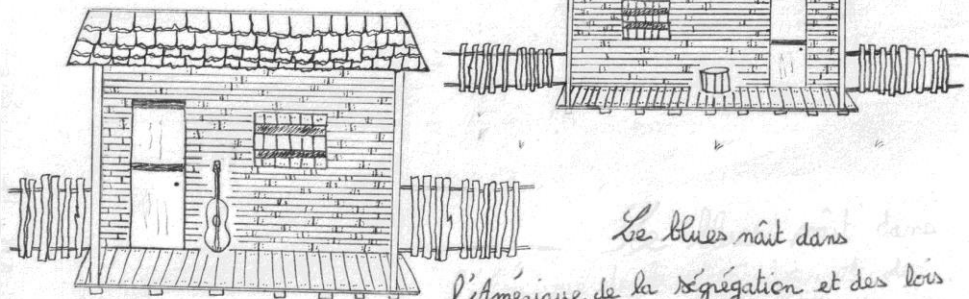 Le blues naît dans
l'Amérique de la ségrégation et des lois